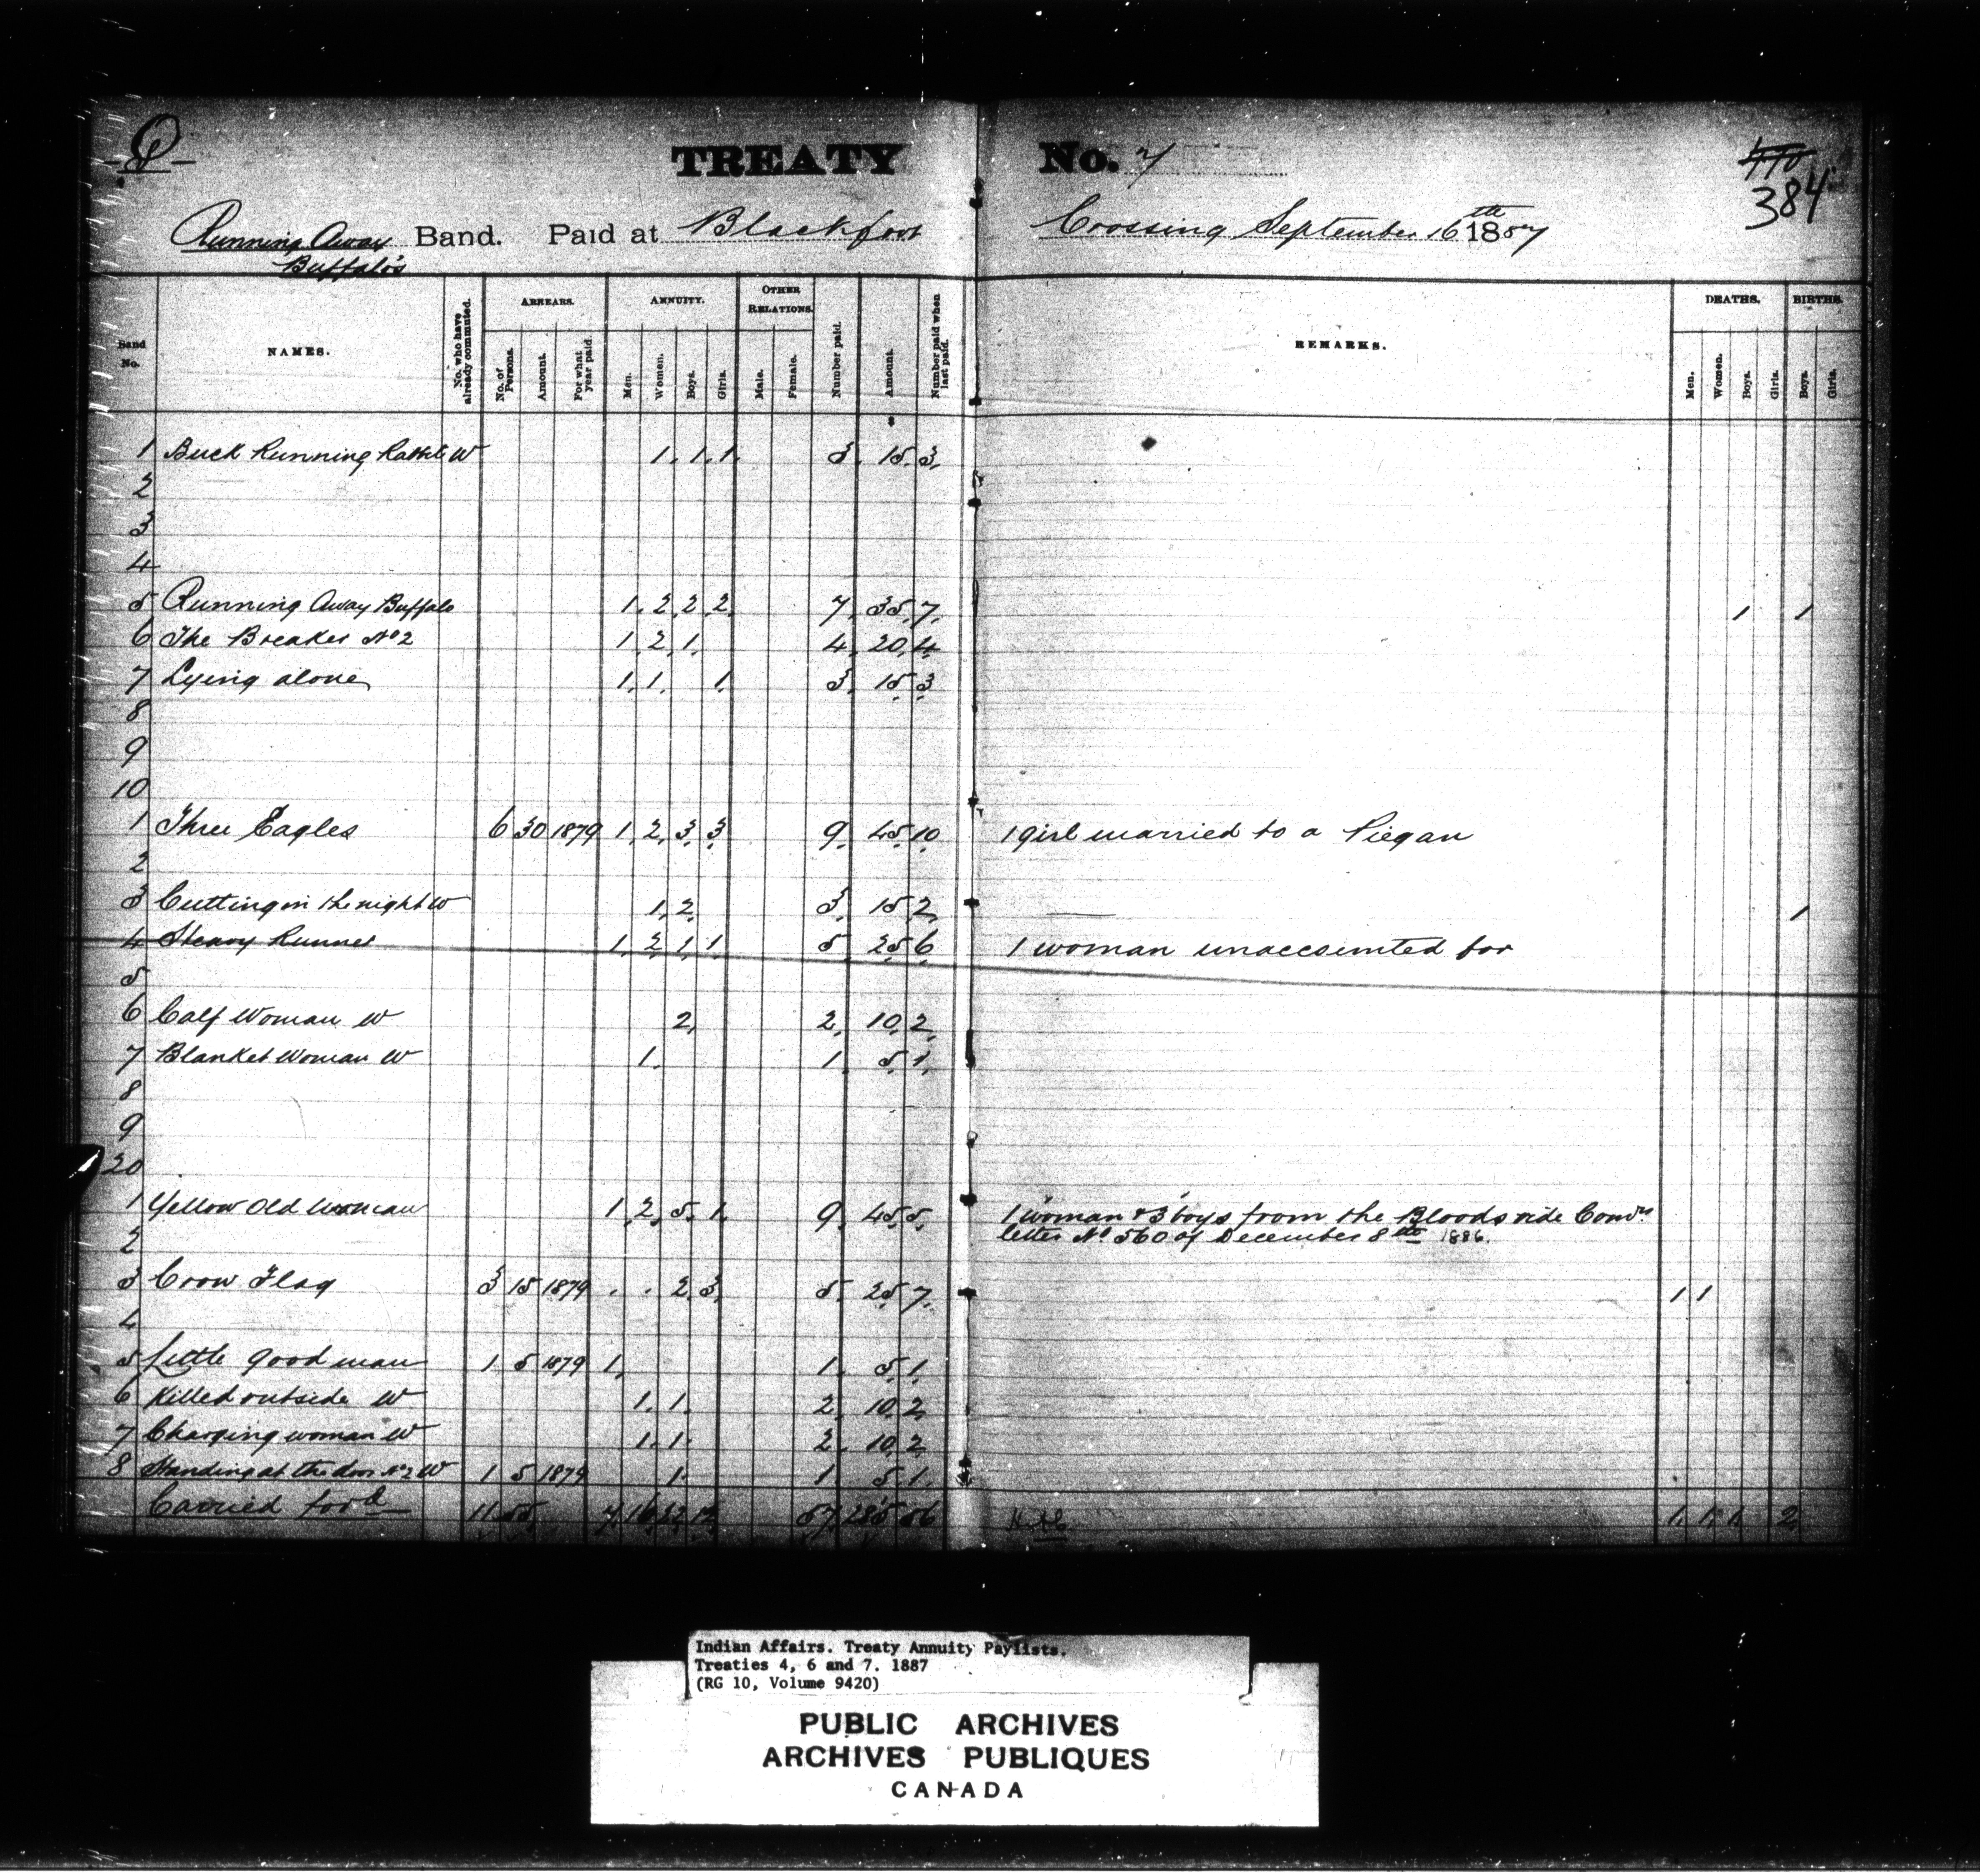 Q
TREATY No. 7
410
384
Running Away Buffalo's Band. Paid at Blackfoot Crossing September 16th 1887
Band No.
NAMES.
No. who have already commuted.
ARREARS.
No. of Persons.
Amount.
For what year paid.
ANNUITY.
Men.
Women.
Boys.
Girls.
OTHER RELATIONS.
Male.
Female.
Number paid.
Amount.
Number paid when last paid.
REMARKS.
DEATHS.
Men.
Women.
Boys.
Girls.
BIRTHS.
Boys.
Girls.
$
1 Buck Running Rabbit W 1. 1. 1. 3. 15. 3.
2
3
4
5 Running Away Buffalo 1. 2. 2. 2. 7. 35. 7. 1 1
6 The Breaker No 2 1. 2. 1. 4. 20. 4.
7 Lying alone 1. 1. 1. 3. 15. 3
8
9
10
1 Three Eagles 6 30 1879 1. 2. 3. 3. 9. 45. 10. 1 girl married to a Piegan
2
3 Cutting in the night W 1. 2. 3. 15. 2. 1
4 Heavy Runner 1. 2. 1. 1. 5. 25. 6. 1 woman unaccounted for
5
6 Calf Woman W 2. 2. 10. 2.
7 Blanket Woman W 1. 1. 5. 1.
8
9
20
1 Yellow Old Woman 1. 2. 5. 1. 9. 45. 5. 1 woman & 3 boys from the Bloods vide Comr's
letter No 560 of December 8th 1886.
2
3 Crow Flag 3 15 1879 . . 2. 3. 5. 25. 7. 1 1
4
5 Little good man 1. 5 1879 1. 1. 5. 1.
6 Killed outside W 1. 1. 2. 10. 2.
7 Charging woman W 1. 1. 2. 10. 2
8 Standing at the door No 2 W 1 5 1879 1. 1 5. 1.
Carried ford 11 55 7 16 22 12 57. 285 56 1. 1. 1. 2.
Indian Affairs. Treaty Annuity Paylists.
Treaties 4, 6 and 7. 1887
(RG 10, Volume 9420)
PUBLIC ARCHIVES
ARCHIVES PUBLIQUES
CANADA